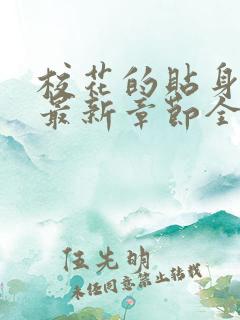 校花的貼身
最新章節全
伍先明
未经同意禁止转载